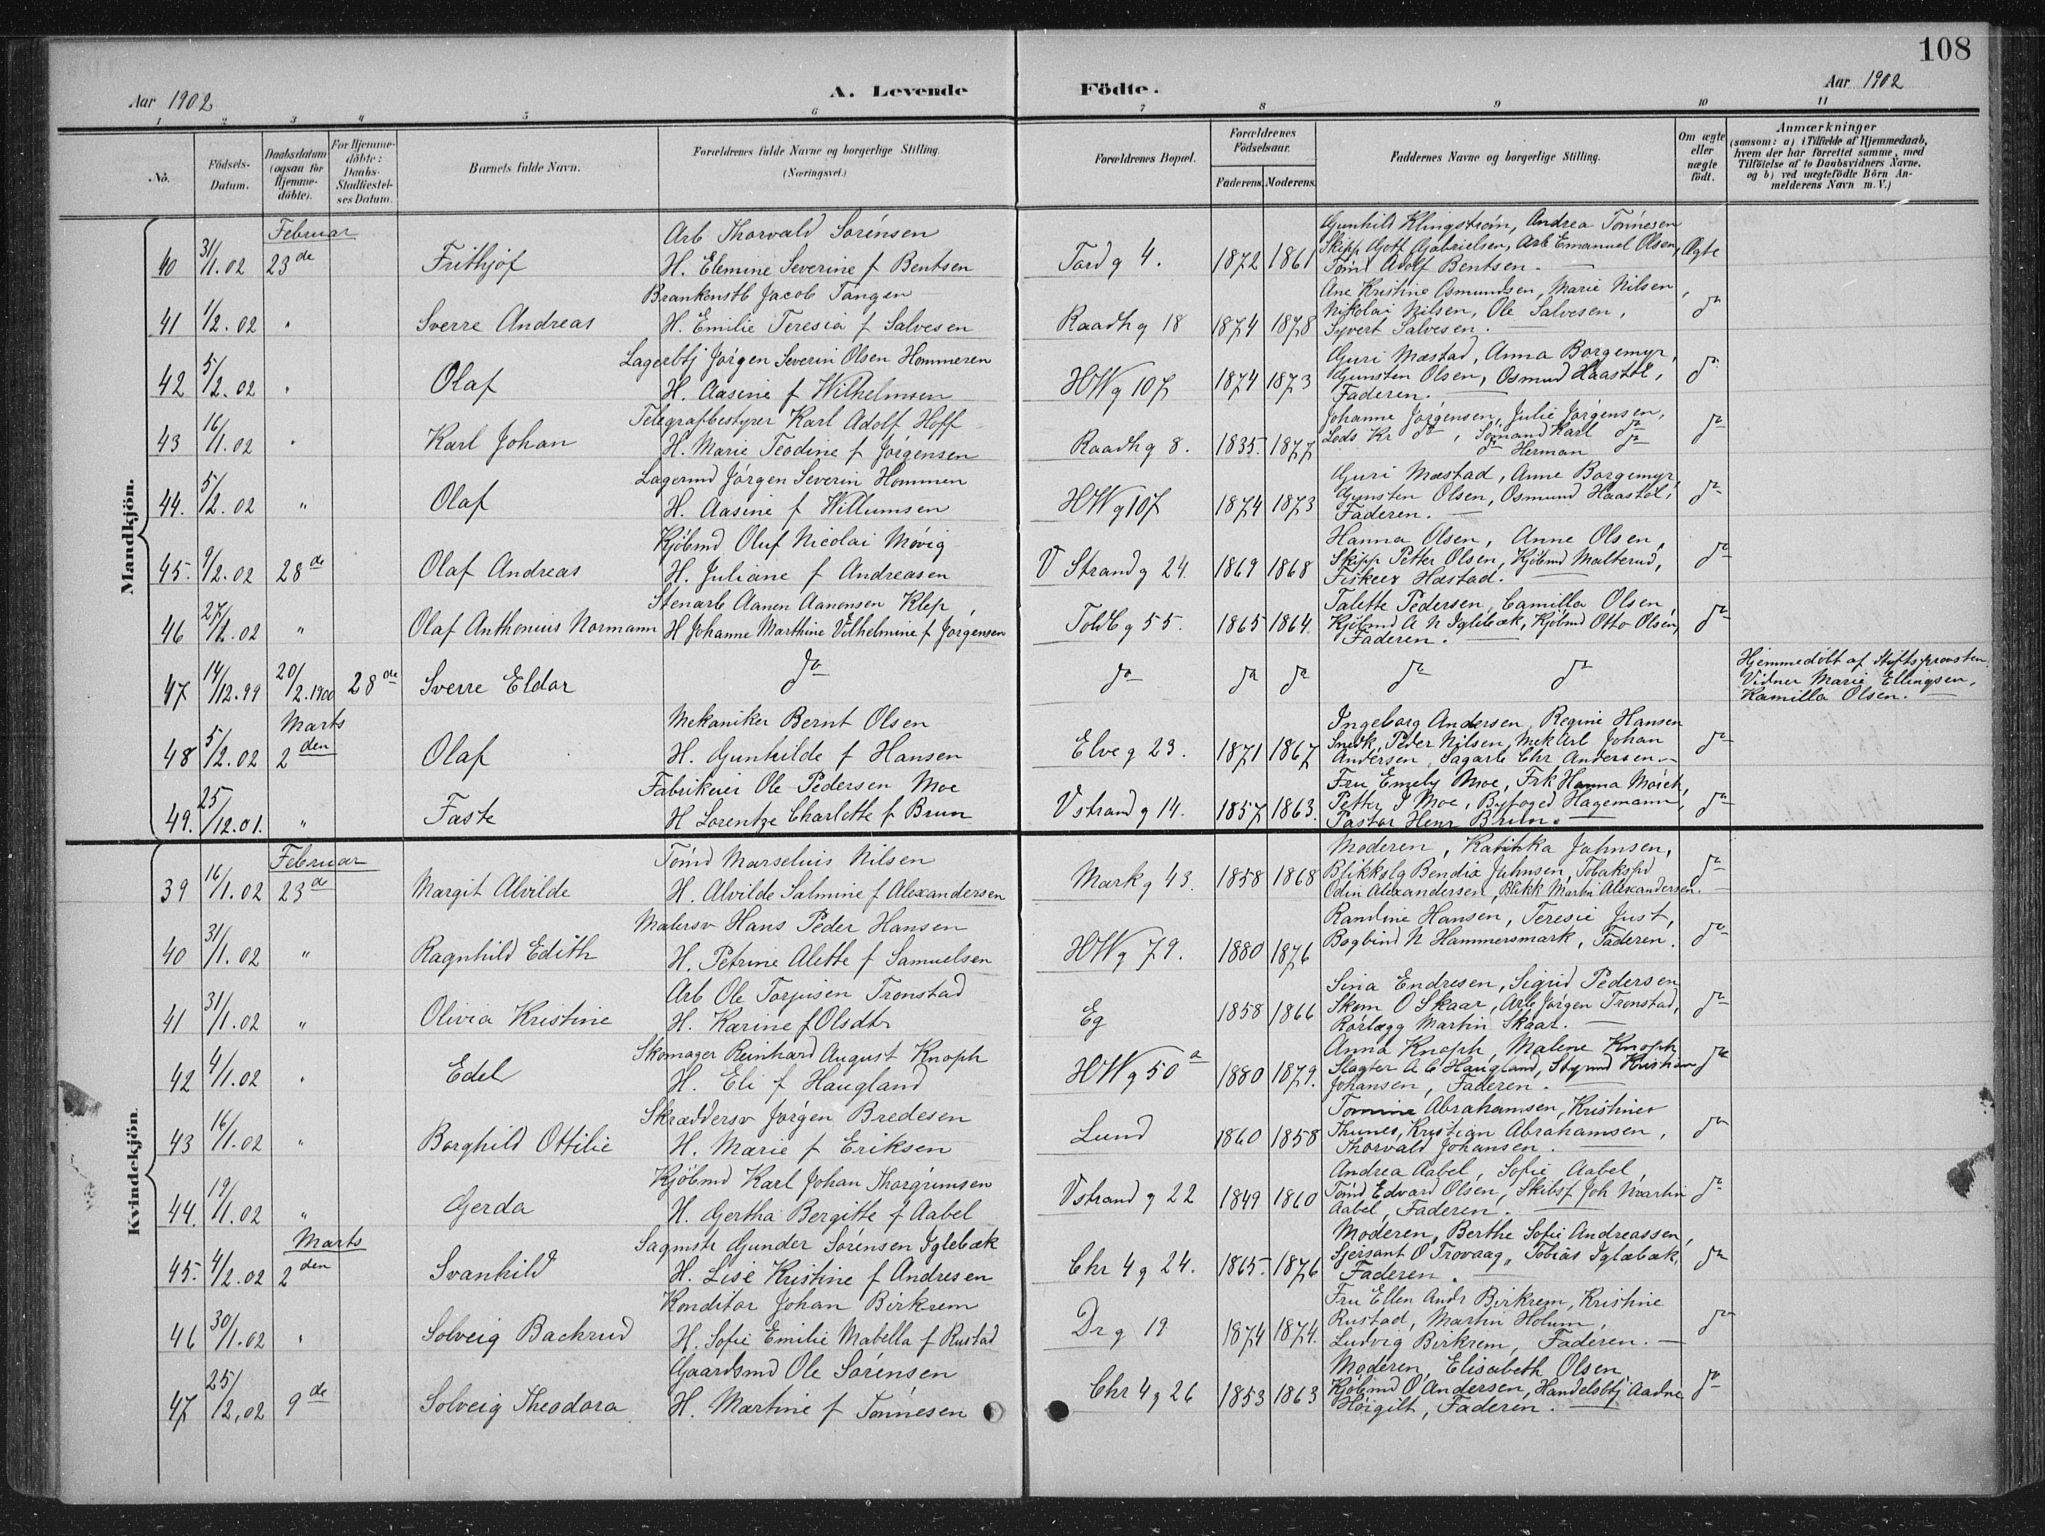 108
Aar 1902 A. Levende Födte. Aar 1902
1 2 3 4 5 6 7 8 9 10 11
No.
Födsels-Datum.
Daabsdatum (ogsaa for Hjemme-döbte).
For Hjemme-döbte: Daabs-Stadfæstel-ses Datum.
Barnets fulde Navn.
Forældrenes fulde Navne og borgerlige Stilling. (Næringsvei.)
Forældrenes Bopæl.
Forældrenes Födselsaar.
Faderens. Moderens.
Faddernes Navne og borgerlige Stilling.
Om ægte eller uægte födt.
Anmærkninger
(saasom: a) i Tilfælde af Hjemmedaab, hvem der har forrettet samme, med Tilföielse af to Daabsvidners Navne, og b) ved uægtefödte Börn An-melderens Navn m. V.)
Mandkjön.
Februar
Arb Thorvald Sørensen Gunhild Klingstrøm, Andrea Tønnesen
40 31/1.02 23de Frithjof H. Elemine Severine f Bentsen Tord g 4. 1872 1861 Skipp Gjotf Gabrielsen, Arb Emanuel Olsen, Ægte
Tømt Adolf Bentsen. —
Brankonstb Jacob Tangen Ane Kristine Osmundsen, Marie Nilsen,
41 1/2.02 " Sverre Andreas H. Emilie Teresia f Salvesen Raadh g 18 1874 1878 Nikolai Nilsen, Ole Salvesen, do
Syvert Salvesen. —
Lagerbtj Jørgen Severin Olsen Hommeren Guri Mæstad, Anna Borgemyr,
42 5/2.02 " Olaf H. Aasine f Wilhelmsen HWg 107 1874 1873 Gunsten Olsen, Osmund Haastøl, do
Faderen. —
Telegrafbestyrer Karl Adolf Hoff Johanne Jørgensen, Julie Jørgensen,
43 16/1.02 " Karl Johan H. Marie Teodine f Jørgensen Raadh g 8. 1835. 1877 Lods Kr do, Sømand Karl do do
do Herman
Lagermd Jørgen Severin Hommen Guri Mæstad, Anne Borgemyr,
44. 5/2.02 " Olaf H. Aasine f Willumsen HWg 107 1874 1873 Gunsten Olsen, Osmund Haastøl, do
Faderen. —
Kjøbmd Oluf Nicolai Møvig Hanna Olsen, Anne Olsen,
45. 9/2.02 28de Olaf Andreas H. Juliane f Andreasen V Strand g 24. 1869 1868 Skipp Petter Olsen, Kjøbmd Malterud, do
Fisker Hæstad. —
Stenarb Aanen Aanensen Klep Talette Pedersen, Camilla Olsen,
46 27/12.02 " Olaf Anthonius Normann H Johanne Marthine Vilhelmine f Jørgensen Toldb g 55. 1865 1864. Kjøbmd A N Iglebæk, Kjøbmd Otto Olsen, do
Faderen. —
47 14/12.99 20/2.1900 28de Sverre Eldar do do do do do do Hjemmedøbt af Stiftsprovsten.
Vidner Marie Ellingsen,
Kamilla Olsen. —
Marts
Mekaniker Bernt Olsen Ingeborg Andersen, Regine Hansen
48 5/2.02 2den Olaf H. Gunhilde f Hansen Elve g 23. 1871 1867 Snedk, Peder Nilsen, Mek Arb Johan do
Andersen, Sagarb Chr Andersen
Fabrikeier Ole Pedersen Moe Fru Emely Moe, Frk Hanna Mørch,
49. 25/12.01. " Faste H Lorentze Charlotte f Brun V strand g 14. 1857 1863. Petter J Moe, Byfoged Hagemann, do
Pastor Henr Brun. —
Kvindekjön.
Februar
Tømd Marselius Nilsen Moderen, Kathinka Johnsen,
39 16/1.02 23de Margit Alvilde H. Alvilde Salmine f Alexandersen Mark g 43. 1858 1868 Blikkslg Bendix Johnsen, Tobakspd do
Odin Alexandersen, Blikk Martin Alexandersen.
Malersv Hans Peder Hansen Randine Hansen, Teresie Just,
40 31/1.02 " Ragnhild Edith H. Petrine Alette f Samuelsen HWg 79. 1880 1876 Bogbind N Hammersmark, Faderen. do
Arb Ole Torjusen Tronstad Sina Endresen, Sigrid Pedersen
41 31/1.02 " Olivia Kristine H. Karine f Olsdtr Eg 1858 1866 Skom O Skaar, Arb Jørgen Tronstad, do
Rørlægg Martin Skaar. —
Skomager Reinhard August Knoph Anna Knoph, Malene Knoph
42 4/1.02 " Edel H. Eli f Haugland HWg 50 a 1880 1879. Slagter A C Haugland, Styrmd Kristian do
Johansen, Faderen. —
Skræddersv Jørgen Bredesen Tomine Abrahamsen, Kristine
43 16/1.02 " Borghild Ottilie H. Marie f Eriksen Lund 1860 1858 Thunes, Kristian Abrahamsen, do
Thorvald Johansen.
Kjøbmd Karl Johan Thorgrimsen Andrea Aabel, Sofie Aabel,
44. 19/1.02 " Gerda H. Gertha Bergitte f Aabel V strand g 22 1849 1860 Tømd Edvard Olsen, Skibsf Joh Martin do
Aabel, Faderen. —
Marts
Sagmstr Gunder Sørensen Iglebæk Moderen, Berthe Sofie Andreassen,
45. 4/2.02 2den Svanhild H. Lise Kristine f Andresen Chr 4 g 24. 1865. 1876 Sjersant O Trovaag, Tobias Iglebæk, do
Faderen. —
Konditor Johan Birkrem Fru Ellen Andr Birkrem, Kristine
46 30/1.02 " Solveig Backrud H. Sofie Emilie Mabella f Rustad Dr g 19 1874 1874. Rustad, Martin Holum, do
Ludvig Birkrem, Faderen. —
Gaardsmd Ole Sørensen Moderen, Elisabeth Olsen,
47 25/12,02 9de Solveig Theodora H. Martine f Tønnesen Chr 4 g 26 1853 1863 Kjøbmd O Andersen, Handelsbtj Aadne do
Høigilt, Faderen. —